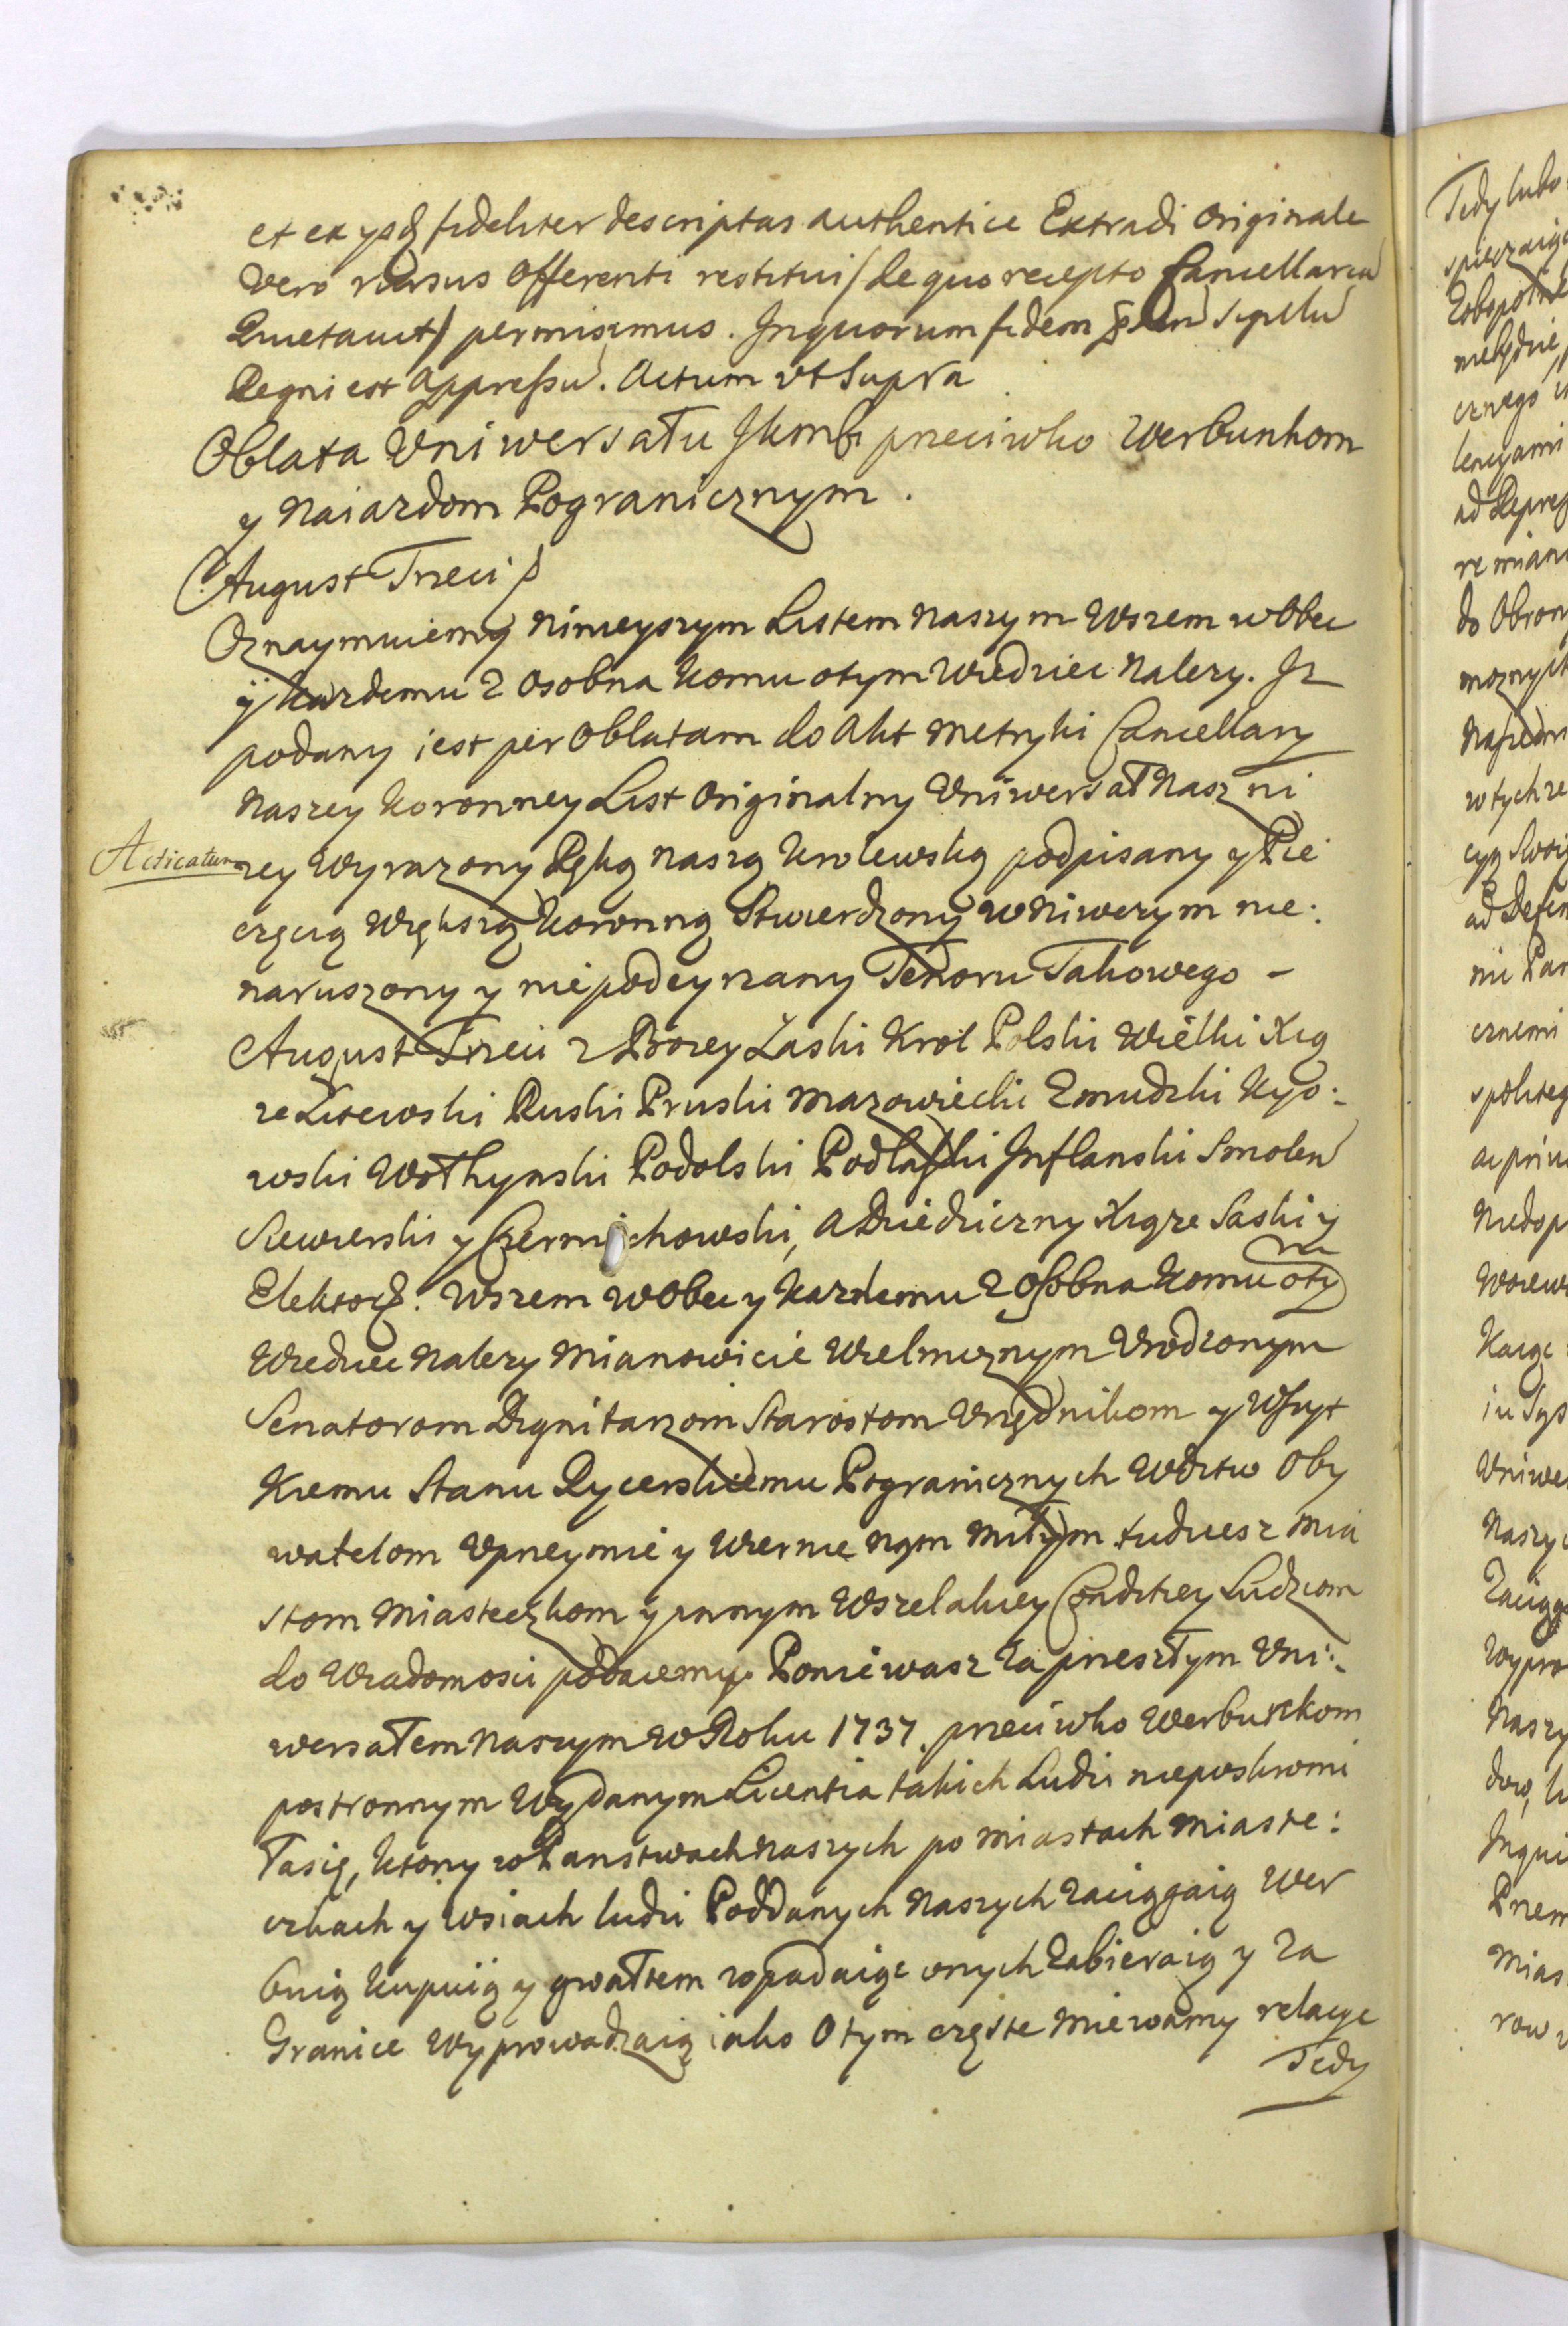 et ex ysq fideliter descriptas authentice Extradi Originale
Vero rursus Offerenti restitui / de quo recepto Cancellaria
Quietauit / permisimus. In quorum fidem Sigillu
Regni est Appressu. Actum vt Supra
Oblata Vniwersału JKmći przeciwko Werbunkom
y Naiazdom Pogranicznym.
August Trzeci
Oznaymuiemy ninieyszym Listem Naszym Wszem wObec
ÿ kazdemu z osobna komu otym Wiedziec Nalezy. Iz
podany iest per Oblatam do Akt Metryki Cancellary
Naszey Koronney List Originalny Vniwersał Nasz ni
Acticatum
zey Wyrazony Ręką Naszą Krolewską podpisany y Pie
częcią Większą Koronną Stwierdzony w Niwczym nie:
naruszony y niepodeyrzany Tenoru Takowego –
August Trzeci z Bozey Łaski Krol Polski Wielki Xią
ze Litewski Ruski Pruski Mazowiecki Zmudzki Kyio:
wski Wołhynski Podolski Podlaski Inflanski Smolen
Siewierski y Czerniechowski, A Dziedziczny Xiąze Saski y
Elektor. Wszem wObec y Kazdemu z Osobna Komu oty
Wiedziec Nalezy Mianowicie Wielmoznym Vrodzonym
Senatorom Dignitarzom Starostom Vrzędnikom y Wszyt
Kiemu Stanu Rycerskiemu Pogranicznych Wdztw Oby
watelom Vprzeymie y Wiernie Nam Miłym tudziesz Mia
stom Miasteczkom y innym Wszelakiey Conditiey Ludziom
do Wiadomosci podaiemy. Poniewasz Za przeszłym Vni:
wersałem Naszym w Roku 1737. przeciwko Werbunkom
postronnym Wydanym Licentia takich Ludzi nieposkromi
Tasię, ktorzy w Panstwach Naszych po Miastach Miaste:
czkach y Wsiach ludzi Poddanych Naszych Zaciągaią Wer
buią Kupuią y gwałtem wpadaiąc onych Zabieraią y Za
Granice Wyprowadzaią iako Otym częste Miewamy relacye
Tedy